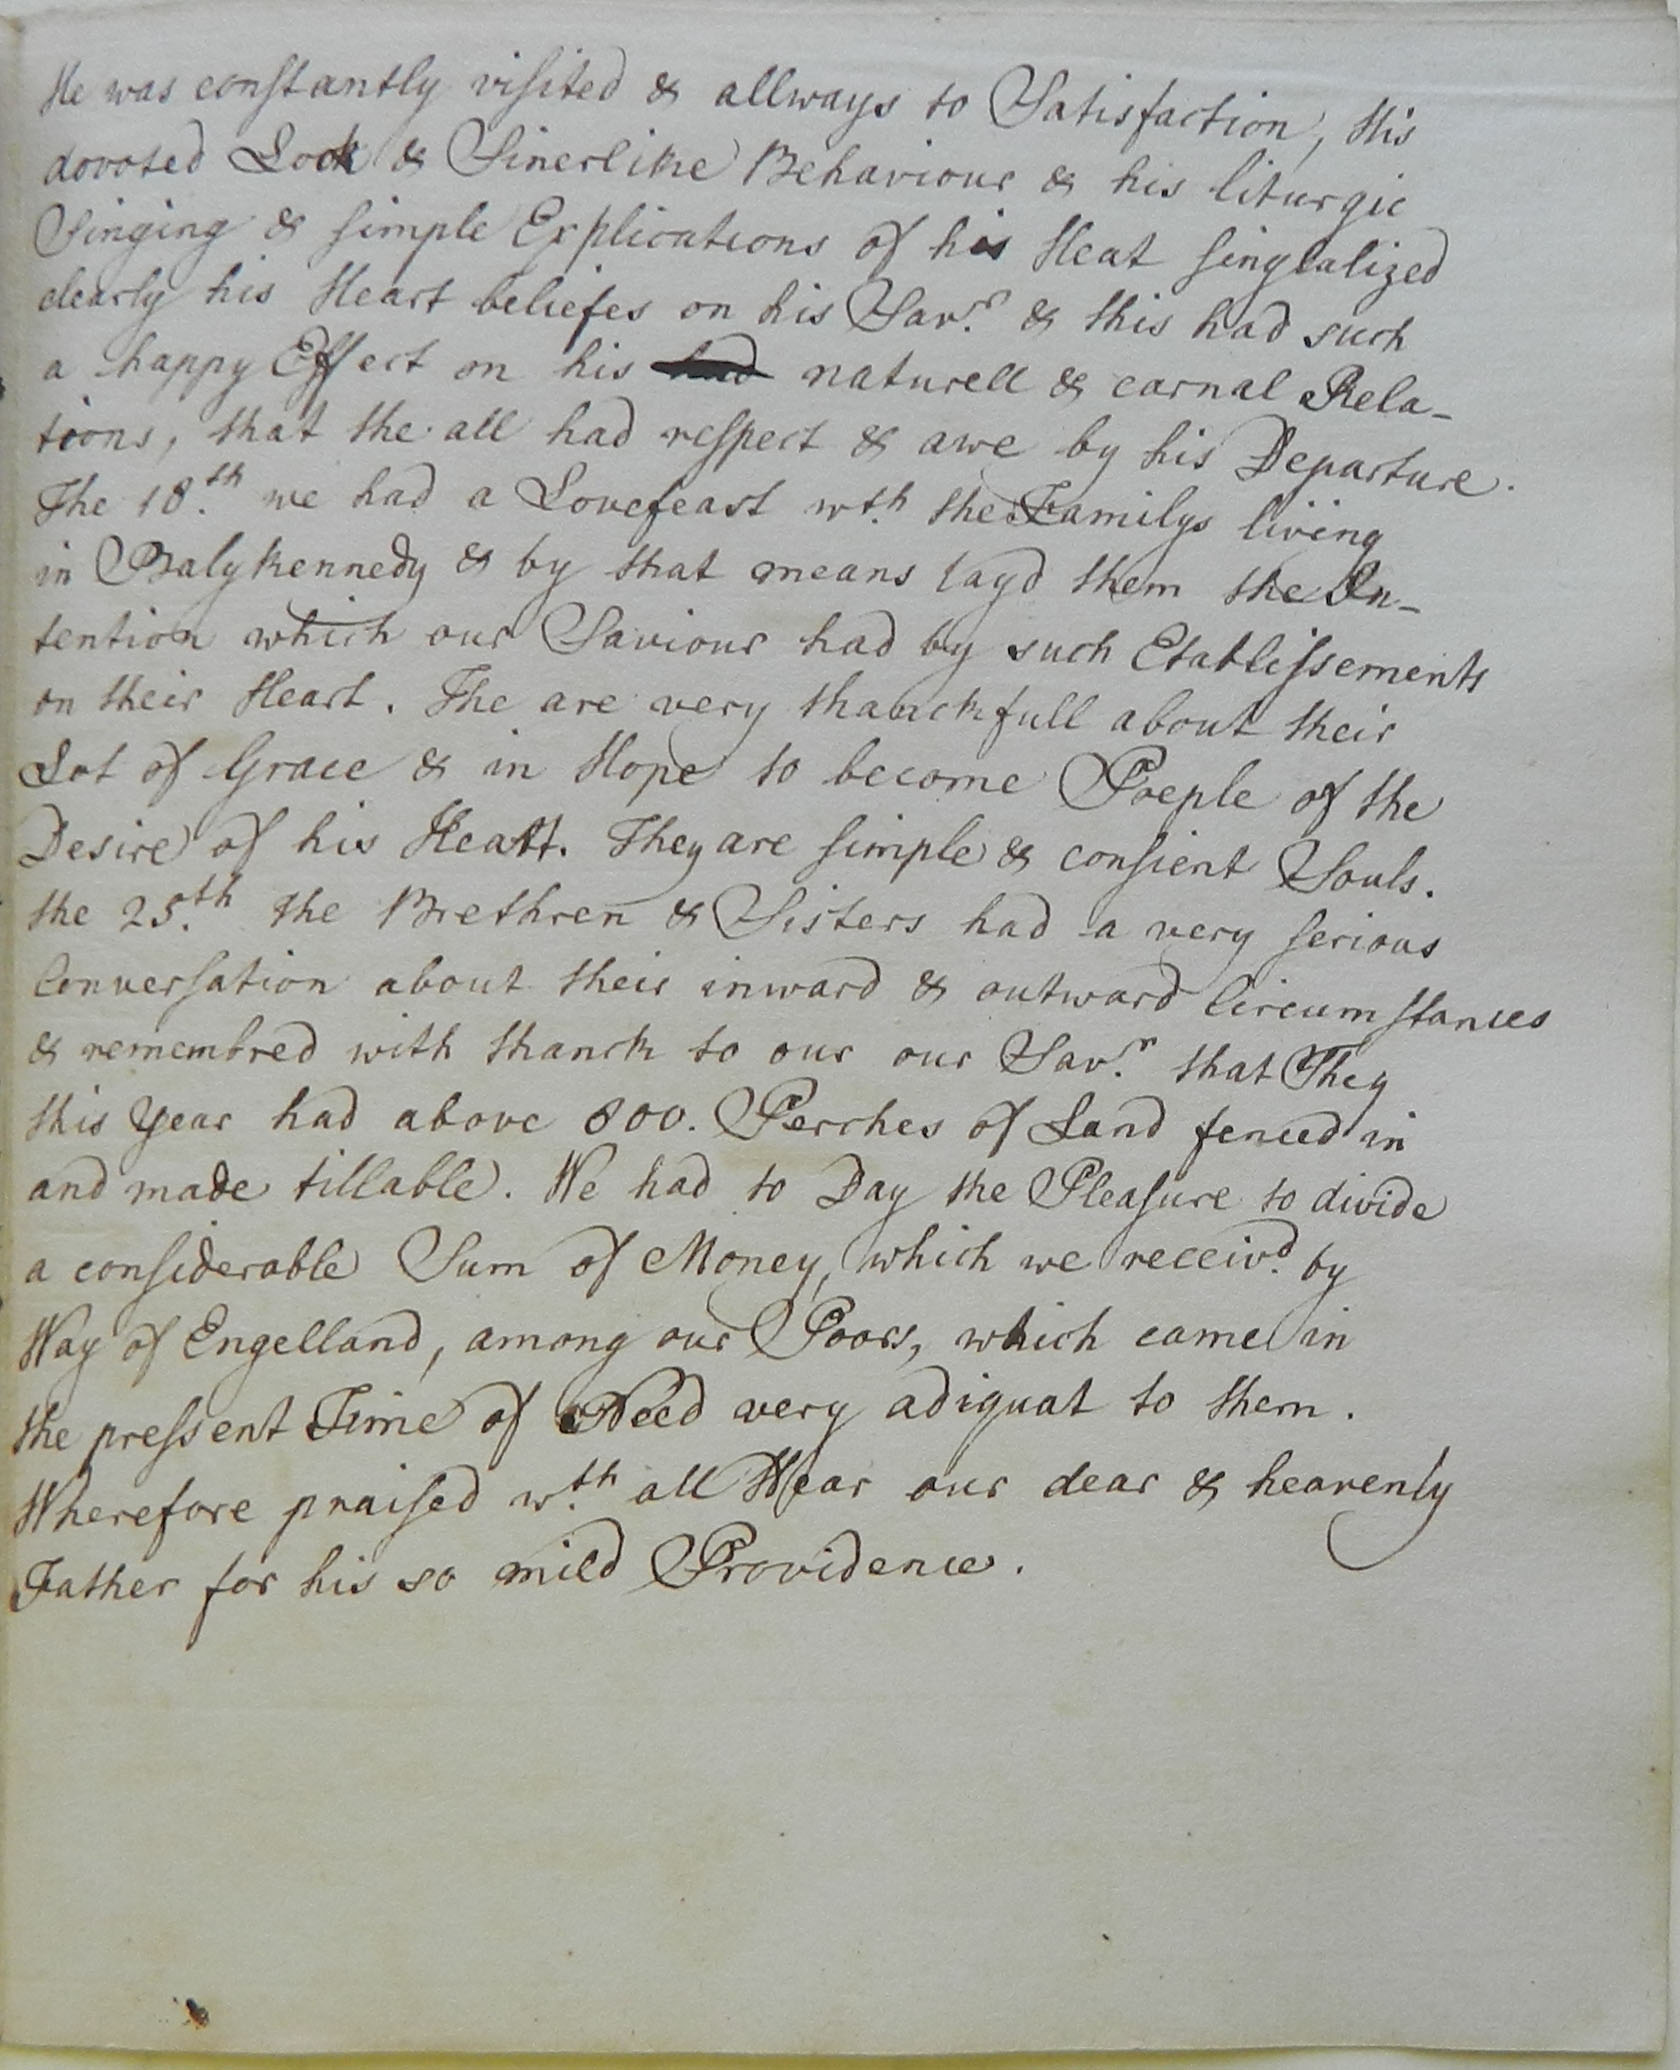 He was constantly visited & allways to Satisfaction, His
dovoted Look & Sinerlike Behaviour & his liturgic
Singing & simple Explications of his Heat singlalized
clearly his Heart beliefes on his Sav.r & this had such
a happy Effect on his had naturell & carnal Rela-
tions, that the all had respect & awe by his Departure.
The 18.th we had a Lovefeast wth. the Familys living
in Balykennedy & by that means layd them the In-
tention which our Saviour had by such Etablissements
on their Heart. The are very thanckfull about their
Lot of Grace & in Hope to become Poeple of the
Desire of his Heart. They are simple & consient Souls.
the 25.th the Brethren & Sisters had a very serious
Conversation about their inward & outward Circumstances
& remembred with thanck to our our Sav.r that They
this Year had above 800. Perches of Land fenced in
and made tillable. We had to Day the Pleasure to divide
a considerable Sum of Money, which we receiv.d by
Way of Engelland, among our Poors, which came in
the pressent Time of Need very adiquat to them.
Wherefore praised w.th all Hear our dear & heavenly
Father for his so mild Providence.